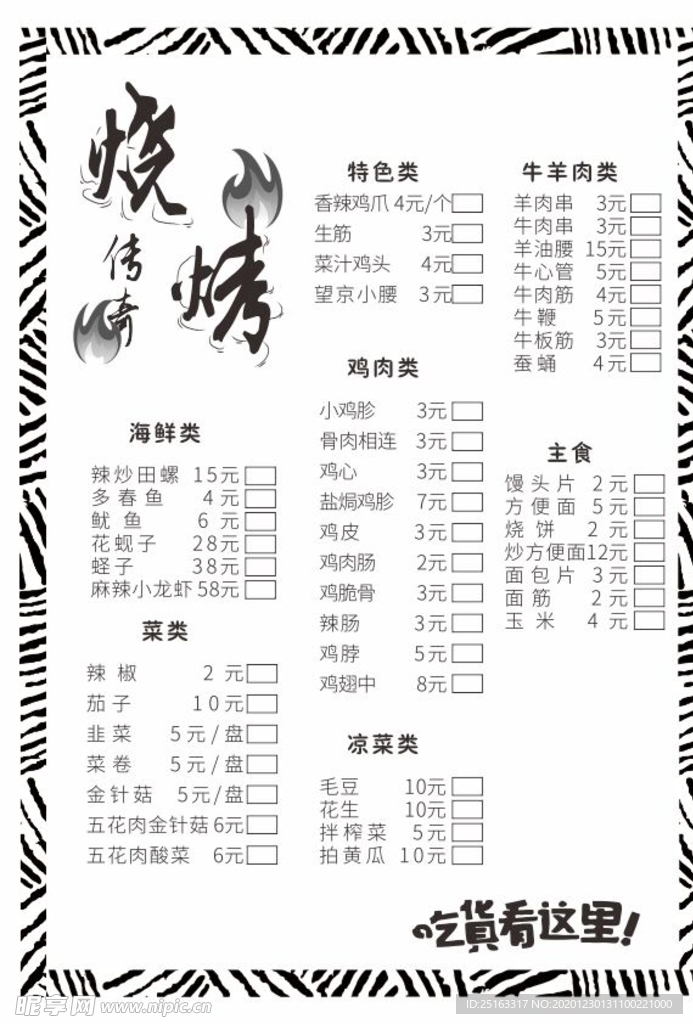 烧
传奇
烤
特色类
香辣鸡爪 4元/个
生筋 3元
菜汁鸡头 4元
望京小腰 3元
牛羊肉类
羊肉串 3元
牛肉串 3元
羊油腰 15元
牛心管 5元
牛肉筋 4元
牛鞭 5元
牛板筋 3元
蚕蛹 4元
鸡肉类
小鸡胗 3元
骨肉相连 3元
鸡心 3元
盐焗鸡胗 7元
鸡皮 3元
鸡肉肠 2元
鸡脆骨 3元
辣肠 3元
鸡脖 5元
鸡翅中 8元
海鲜类
辣炒田螺 15元
多春鱼 4元
鱿鱼 6元
花蚬子 28元
蛏子 38元
麻辣小龙虾 58元
主食
馒头片 2元
方便面 5元
烧饼 2元
炒方便面12元
面包片 3元
面筋 2元
玉米 4元
菜类
辣椒 2元
茄子 10元
韭菜 5元/盘
菜卷 5元/盘
金针菇 5元/盘
五花肉金针菇 6元
五花肉酸菜 6元
凉菜类
毛豆 10元
花生 10元
拌榨菜 5元
拍黄瓜 10元
吃货看这里!
昵享网 www.nipic.cn
ID:25163317 NO:20201230131100221000